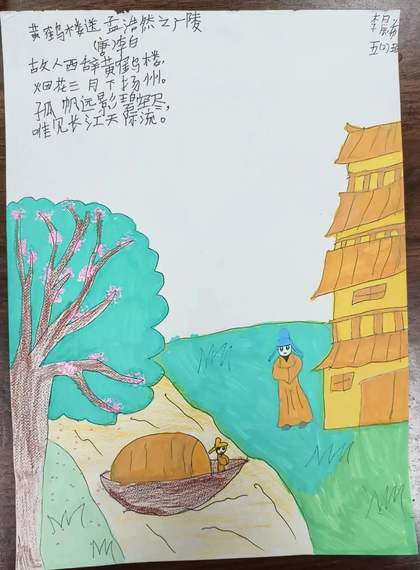 黄鹤楼送孟浩然之广陵
(唐)李白
故人西辞黄鹤楼,
烟花三月下扬州。
孤帆远影碧空尽,
唯见长江天际流。
五(1)班